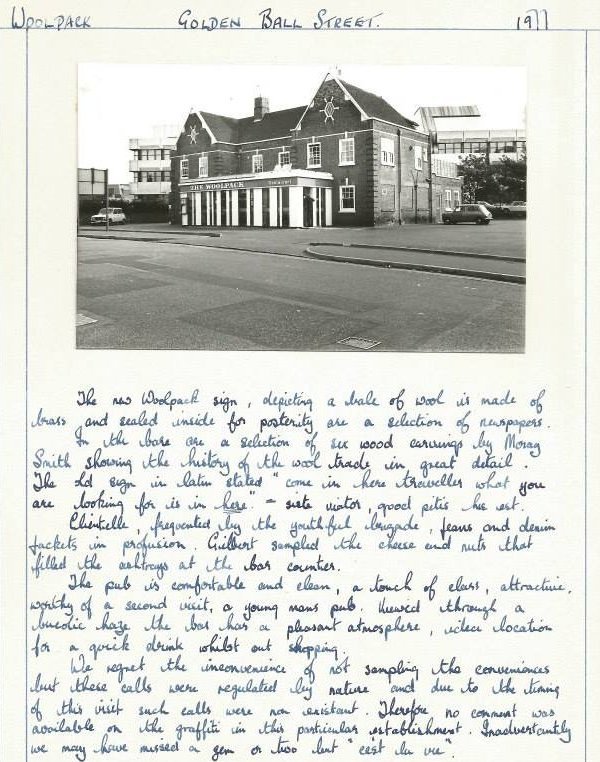 WOOLPACK GOLDEN BALL STREET. 1977
THE WOOLPACK Restaurant
The new Woolpack sign, depicting a bale of wool is made of
brass and sealed inside for posterity are a selection of newspapers.
In the bars are a selection of six wood carvings by Morag
Smith showing the history of the wool trade in great detail.
The old sign in latin stated "come in here traveller what you
are looking for is in here" - siste viator, quod petis hic est.
Clientelle, frequented by the youthful brigade, jeans and denim
jackets in profusion. Gilbert sampled the cheese and nuts that
filled the ashtrays at the bar counter.
The pub is comfortable and clean, a touch of class, attractive,
worthy of a second visit, a young mans pub. Viewed through a
bucolic haze the bar has a pleasant atmosphere, ideal location
for a quick drink whilst out shopping.
We regret the inconvenience of not sampling the conveniences
but these calls were regulated by nature and due to the timing
of this visit such calls were non existant. Therefore no comment was
available on the graffiti in this particular establishment. Inadvertantly
we may have missed a gem or two but "c'est la vie".